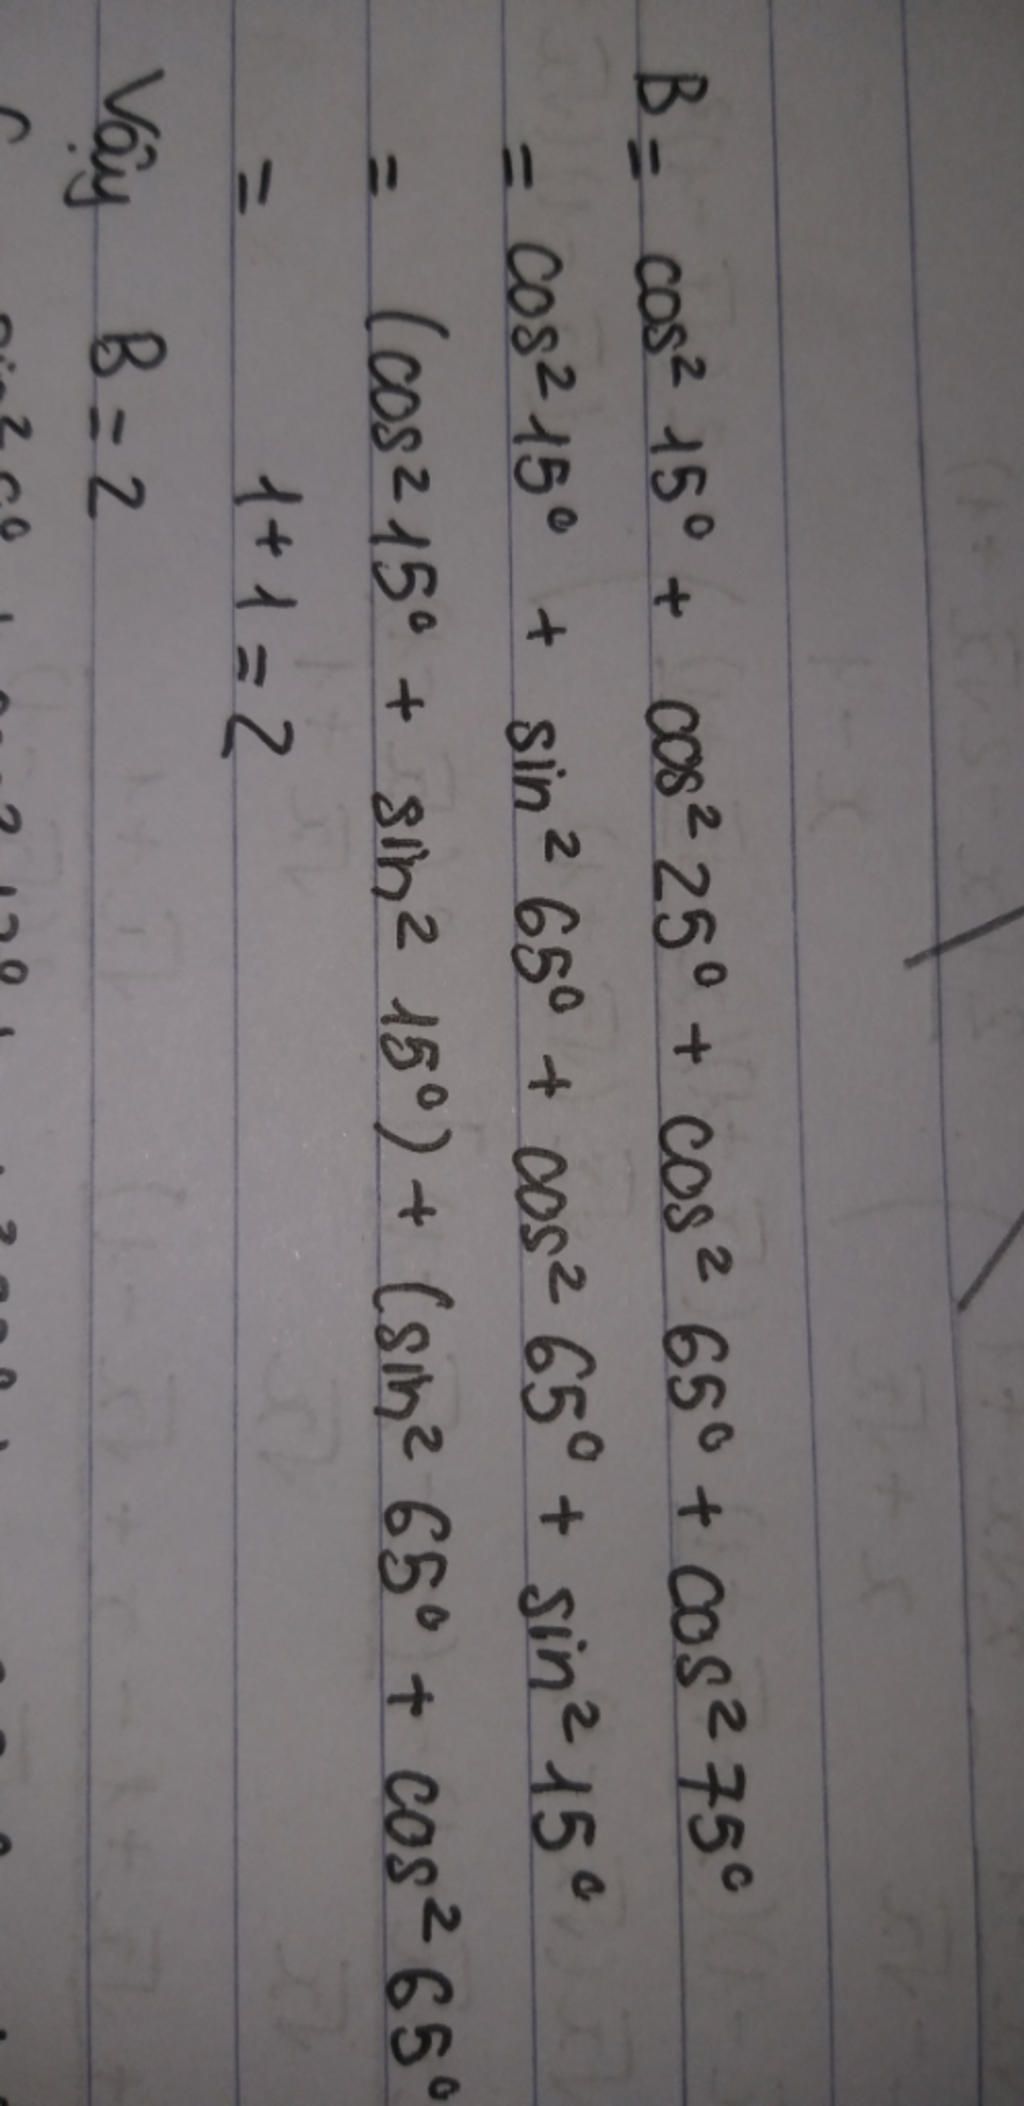 B = cos² 15° + cos² 25° + cos² 65° + cos² 75°
= cos² 15° + sin² 65° + cos² 65° + sin² 15°
= (cos² 15° + sin² 15°) + (sin² 65° + cos² 65°
= 1 + 1 = 2
Vậy B = 2